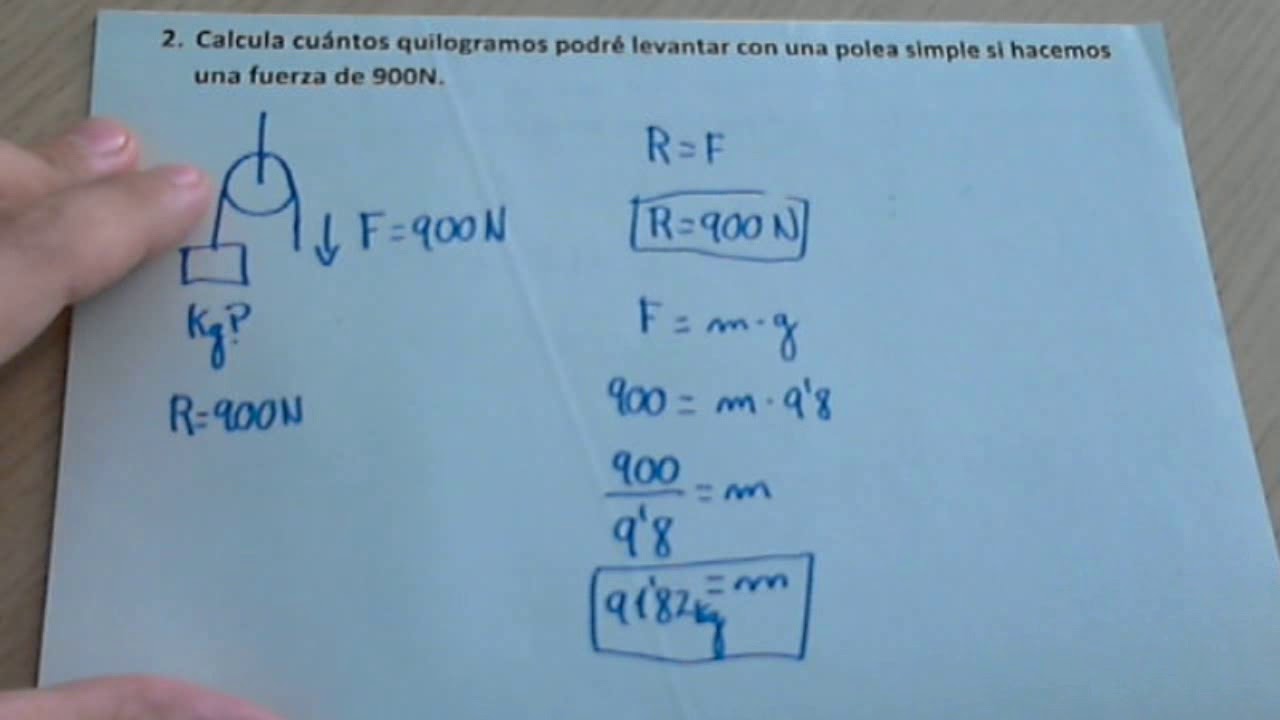 2. Calcula cuántos quilogramos podré levantar con una polea simple si hacemos
una fuerza de 900N.
F=900N
Kg?
R=900N
R=F
R=900N
F=m·g
900=m·9'8
900
9'8
=m
91'82kg=m